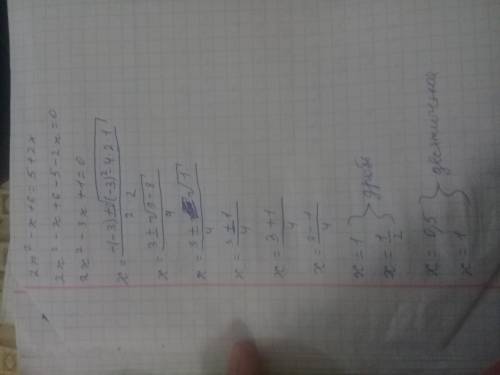 2x² - x + 6 = 5 + 2x
2x² - x + 6 - 5 - 2x = 0
2x² - 3x + 1 = 0
x = (-(-3) ± √((-3)² - 4·2·1)) / (2·2)
x = (3 ± √(9 - 8)) / 4
x = (3 ± √1) / 4
x = (3 ± 1) / 4
x = (3 + 1) / 4
x = (3 - 1) / 4
x = 1 } дробь
x = 1/2
x = 0,5 } десятичной
x = 1